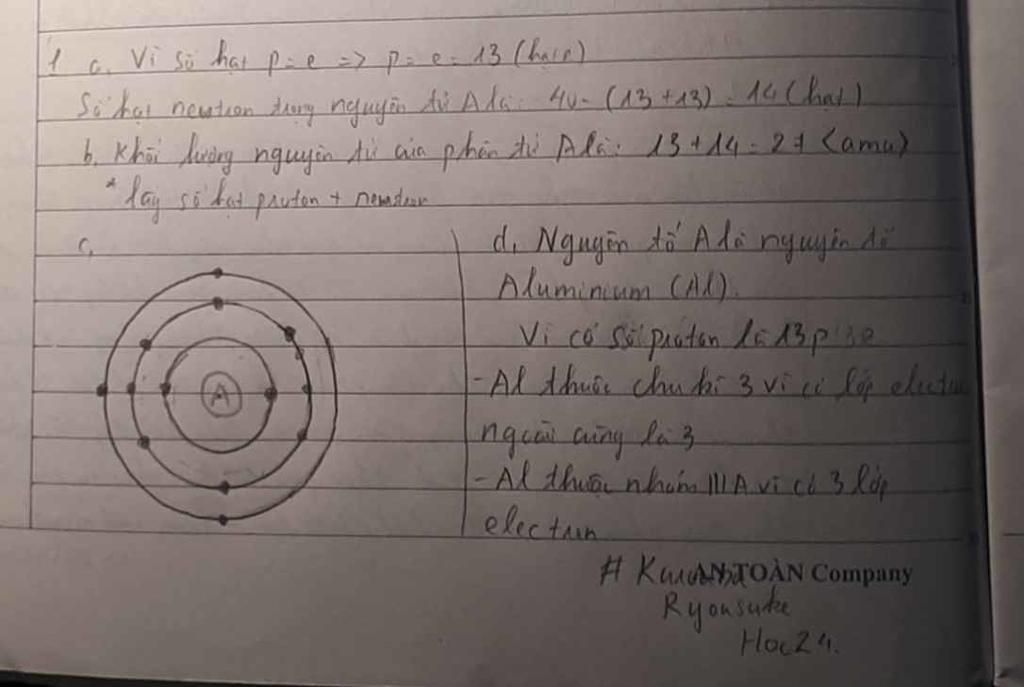 1 a. Vì số hạt p = e => p = e = 13 (hạt)
Số hạt newtron trong nguyên tử A là: 40 - (13+13) = 14 (hạt)
b, Khối lượng nguyên tử của phân tử A là: 13 + 14 = 27 (amu)
* lấy số hạt proton + newtron
c,
A
d, Nguyên tố A là nguyên tố
Aluminium (Al).
Vì có số proton là 13p
- Al thuộc chu kì 3 vì có lớp electron
ngoài cùng là 3
- Al thuộc nhóm IIIA vì có 3 lớp
electron
# AN TOÀN Company
Ryousuke
Hoc24.